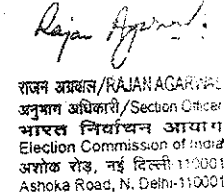 Rajan Agarwal
राजन अग्रवाल/RAJAN AGARWAL
अनुभाग अधिकारी/Section Officer
भारत निर्वाचन आयोग
Election Commission of India
अशोक रोड़, नई दिल्ली-110001
Ashoka Road, N. Delhi-110001